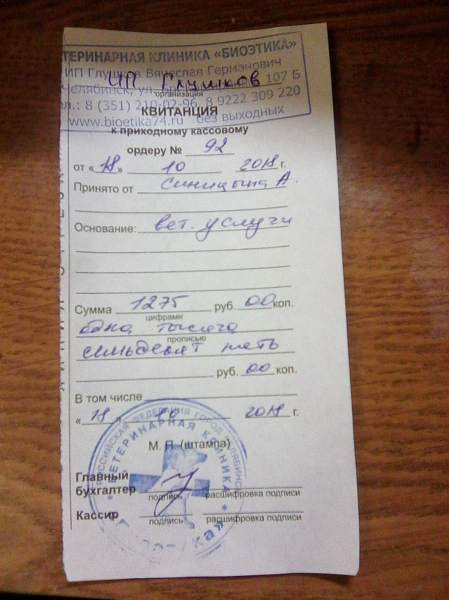 ВЕТЕРИНАРНАЯ КЛИНИКА «БИОЭТИКА»
ИП Глушков Вячеслав Германович
ИП Глушков
Челябинск, ул. 107 Б
организация
тел.: 8 (351) 210-02-96, 8 9222 309 220
КВИТАНЦИЯ
www.bioetika74.ru без выходных
к приходному кассовому
ордеру № 92
от «18» 10 2018 г.
Принято от Синицына А.
Основание: вет. услуги
Сумма 1275 руб. 00 коп.
цифрами
одна тысяча
прописью
семьдесят пять
руб. 00 коп.
В том числе
«18» 10 2018 г.
М. П. (штампа)
РОССИЙСКАЯ ФЕДЕРАЦИЯ ГОРОД ЧЕЛЯБИНСК
ВЕТЕРИНАРНАЯ КЛИНИКА
Главный
бухгалтер
подпись расшифровка подписи
Кассир
подпись расшифровка подписи